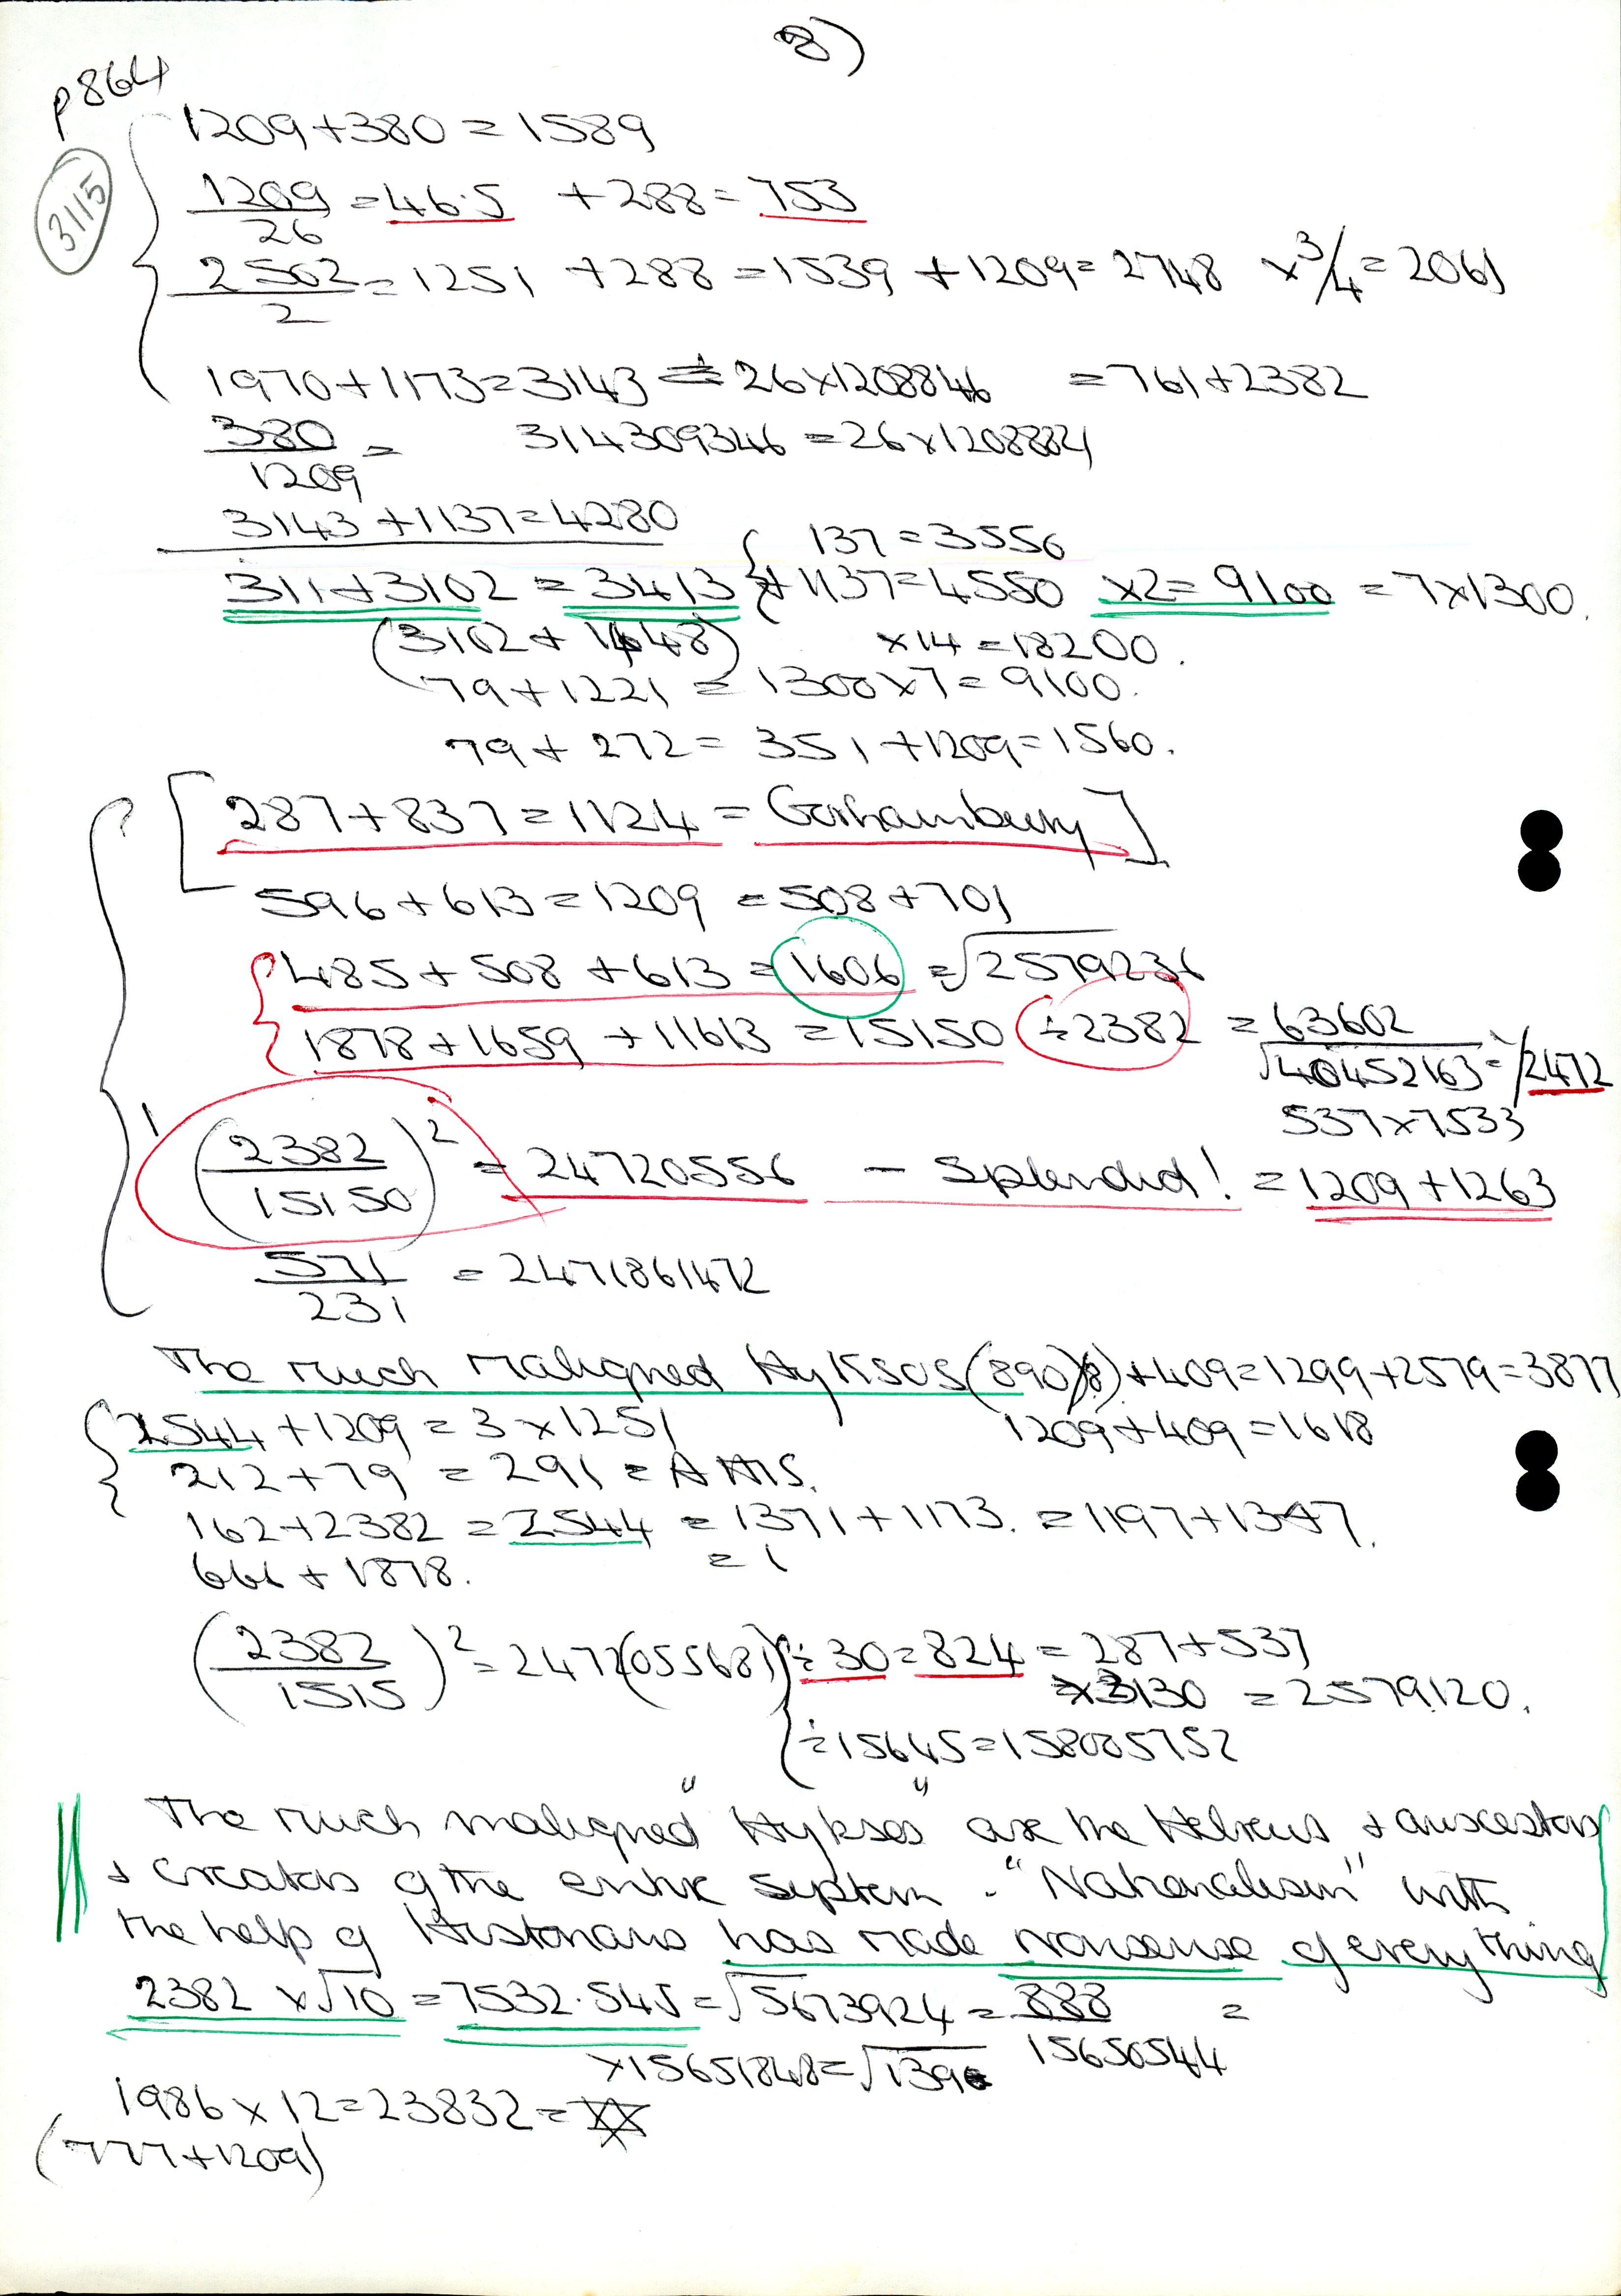 8)
p864
3115
1209+380=1589
1209/26 = 46.5 +288= 753
2502/2 = 1251 +288 =1539 +1209=2748 ×3/4=2061
1970+1173=3143 = 26×1208846 =761+2382
380/1209 = 314309346 =26×1208884
3143+1137=4280
137=3556
311+3102 = 3413 +1137=4550 ×2= 9100 = 7×1300.
(3102+ 1448) ×14=18200.
79+1221 = 1300×7=9100.
79+ 272= 351+1209=1560.
[287+837=1124= Gorhambury]
596+613=1209 =508+701
485+508+613=1606 =√2579236
1878+1659+11613=15150 ÷2382 = 63602
√40452163=1/2472
537×7533
(2382/15150)² = 24720556 — Splendid! = 1209+1263
571/231 = 2471861472
The much maligned Hyksos (890)(8)+409=1299+2579=3877
2544+1209=3×1251 1209+409=1618
212+79 = 291 = A MS.
162+2382 = 2544 = 1371+1173. =1197+1347.
666+1878. = 1
(2382/1515)² = 2472(055681) ÷30=824 = 287+537
×3130 = 2579120.
÷15645=158005752
The much maligned "Hyksos" are the Hebrews & ancestors
& creators of the entire system. "Nationalism" with
the help of Historians has made nonsense of everything
2382 ×√10 =7532.545=√5673924= 888/15650544 =
×15651848=√1396
1986×12=23832=✡
(777+1209)